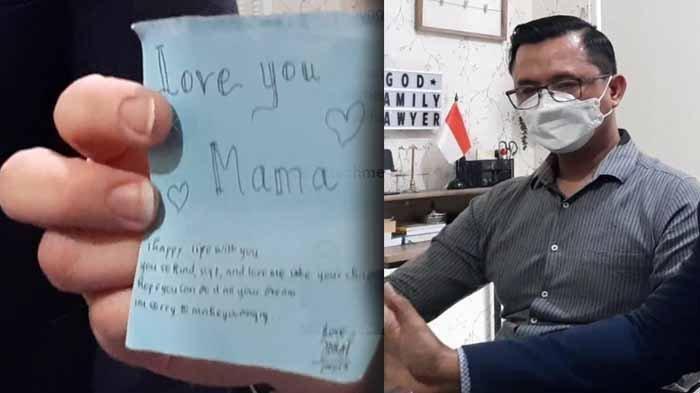 I love you
Mama
I happy life with you
you so kind,
and love me like your
Hope you can do it all your dream
im sorry to make you angry
love
GOD
FAMILY
LAWYER